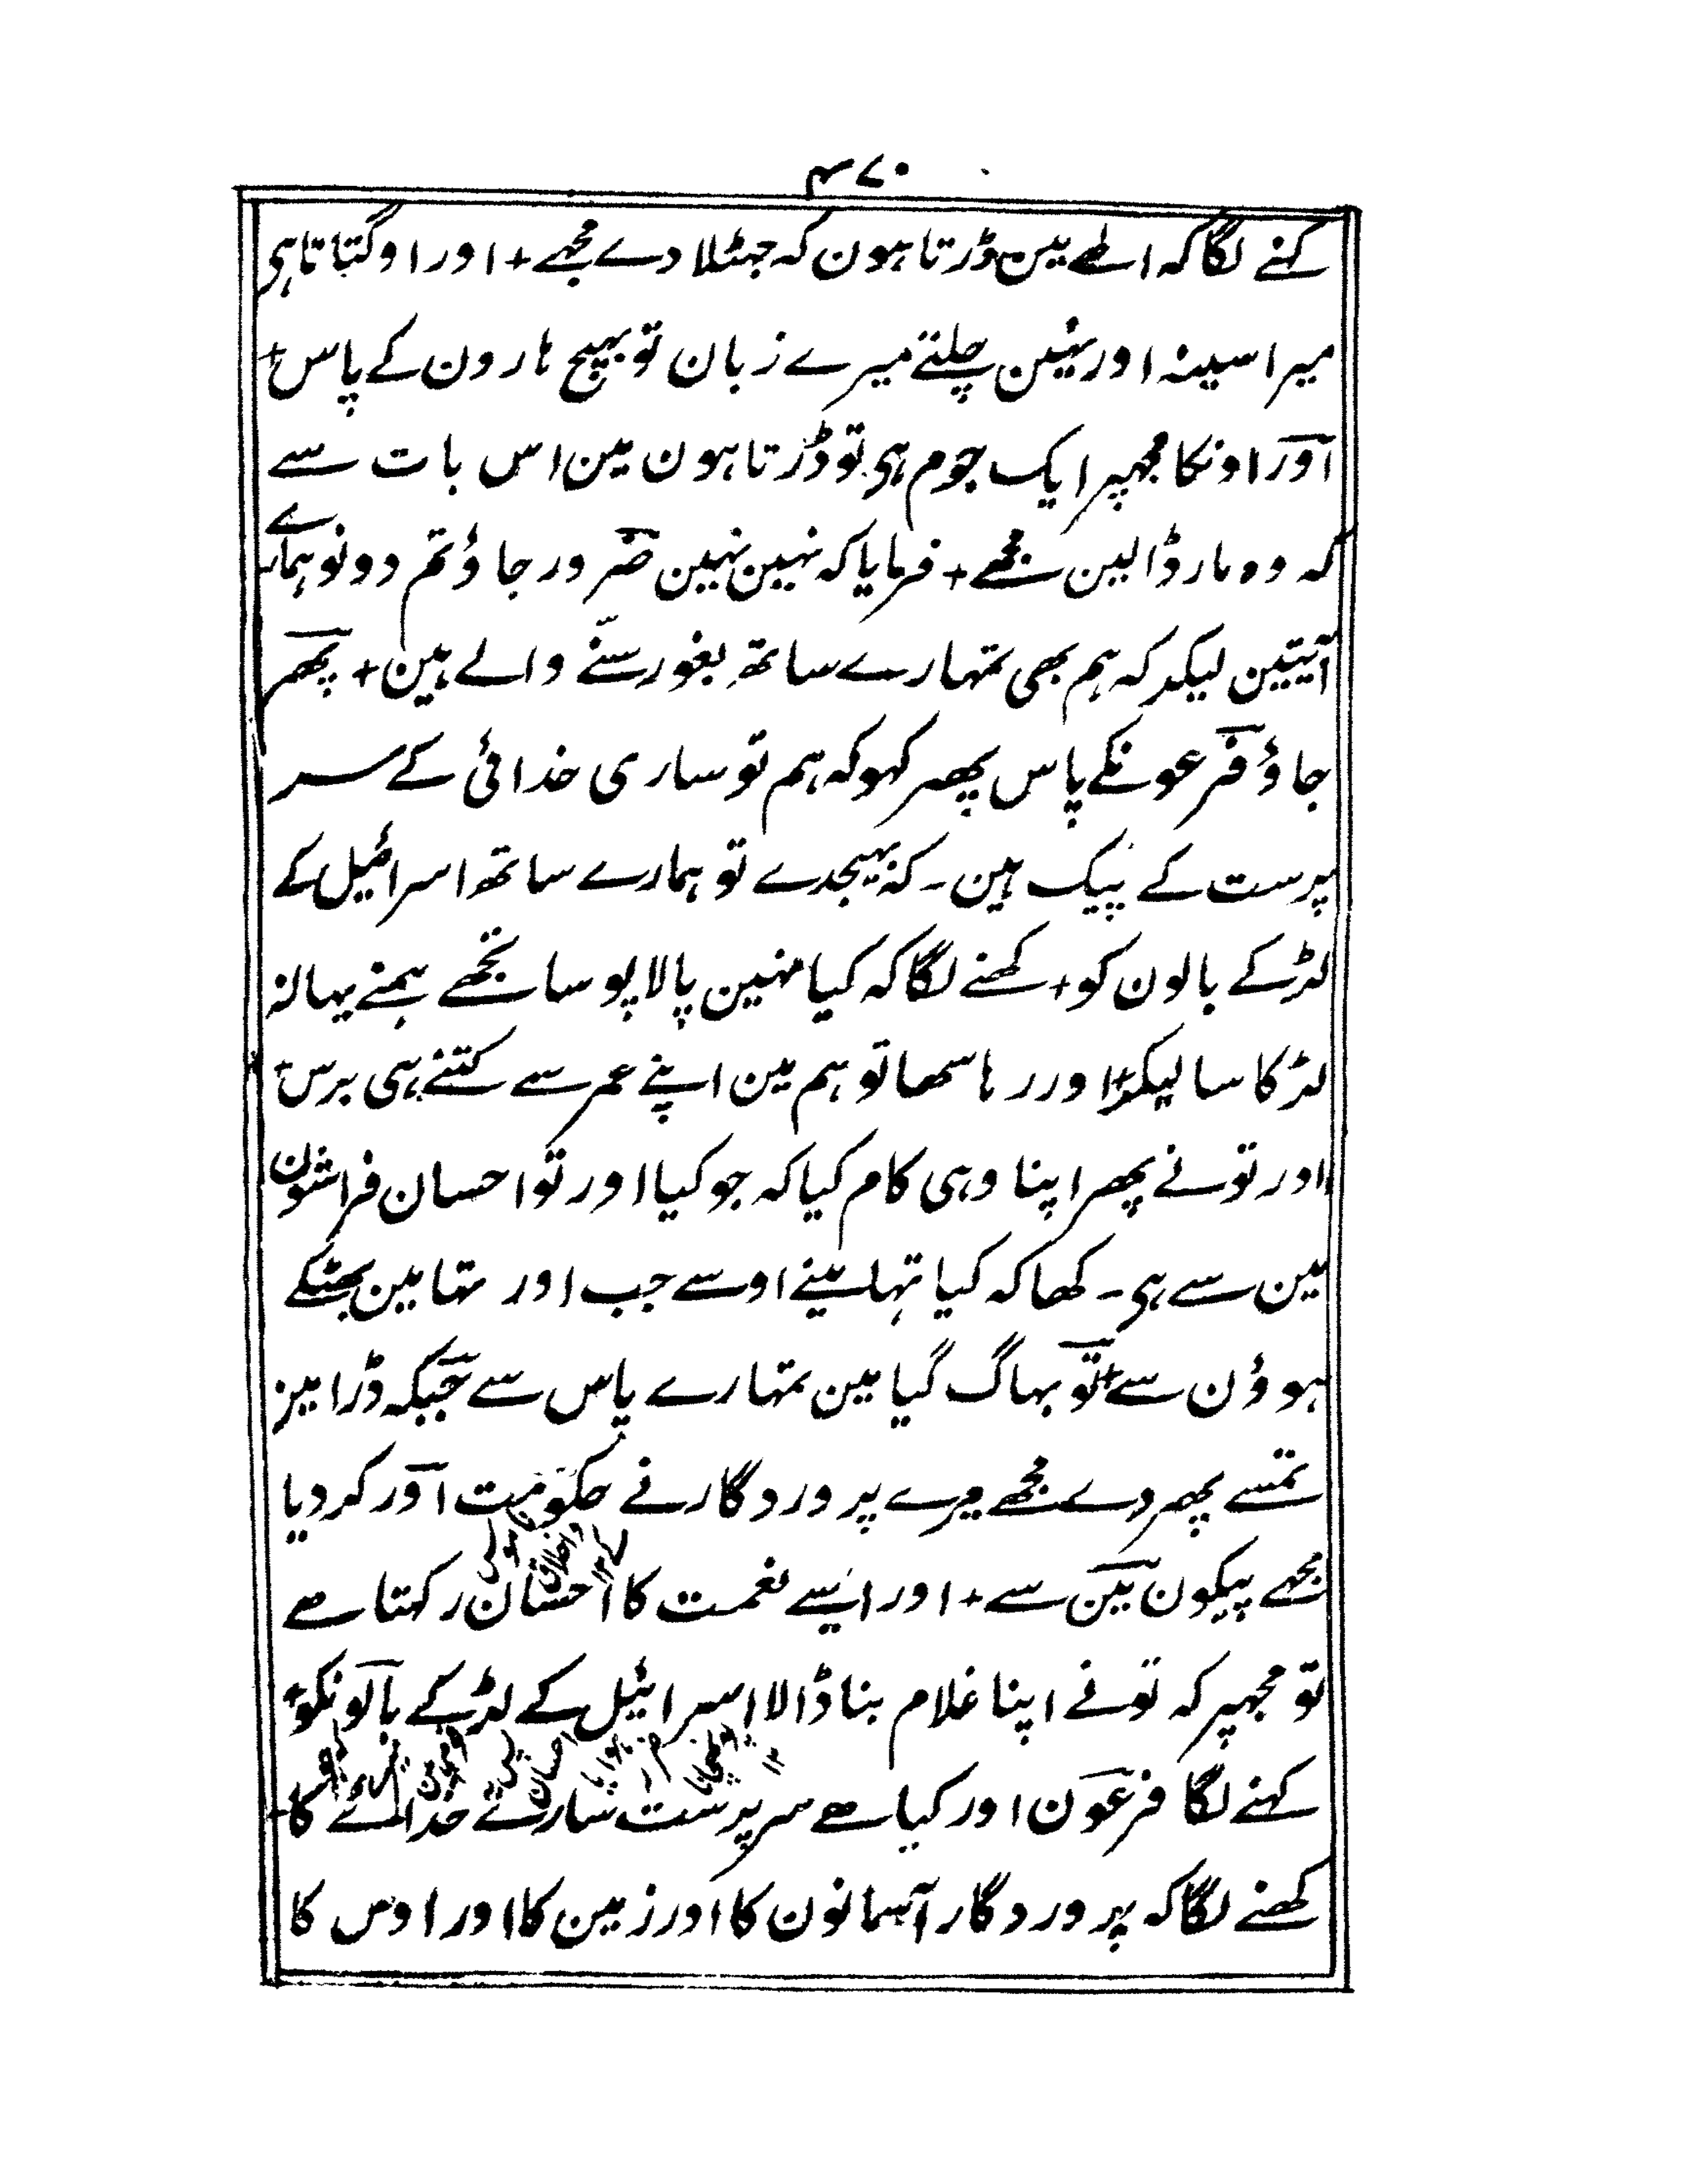 ۴۷۰
کہنے لگا کہ الٰہی مین ڈرتا ہون کہ جہٹلا دے مجھے + اور اوگتاتا ہی
میرا سینہ اور نہین چلتے میرے زبان تو بہیج ہارون کے پاس +
اور اونکا مجہپر ایک جرم ہی تو ڈرتا ہون مین اس بات سے
کہ وہ مار ڈالین مجھے + فرمایا کہ نہین نہین ضرور جاؤ تم دونو ہمارے
آیتین لیکر کہ ہم بھی تمہارے ساتھ بغور سنّے والے ہین + پھر
جاؤ فرعونکے پاس پھر کہو کہ ہم تو ساری خدائی کے سر
پرست کے پیک ہین ۔ کہ بہیجدے تو ہمارے ساتھ اسرائیل کے
لڑکے بالون کو + کھنے لگا کہ کیا نہین پالا پوسا تجھے ہمنے یہان
لڑکا سا لیکر + اور رہا سہا تو ہم مین اپنے عمر سے کتنے ہی برس +
اور تونے پھر اپنا وہی کام کیا کہ جو کیا اور تو احسان فراموشون
مین سے ہی ۔ کھا کہ کیا تہا مینے اوسے جب اور تہا مین بھٹکے
ہوؤن سے + تو بہاگ گیا مین تمہارے پاس سے جبکہ ڈرا مین
تمسے پھر دے مجھے میرے پروردگار نے حکومت اور کر دیا
مجھے پیکون مین سے + اور ایسے نعمت کا احسان رکہتا ہے
تو مجہپر کہ تونے اپنا غلام بنا ڈالا اسرائیل کے لڑکے بالونکو +
کہنے لگا فرعون اور کیا ہے سرپرست سارے خدائے کا +
کھنے لگا کہ پروردگار آسمانون کا اور زمین کا اور اوس کا